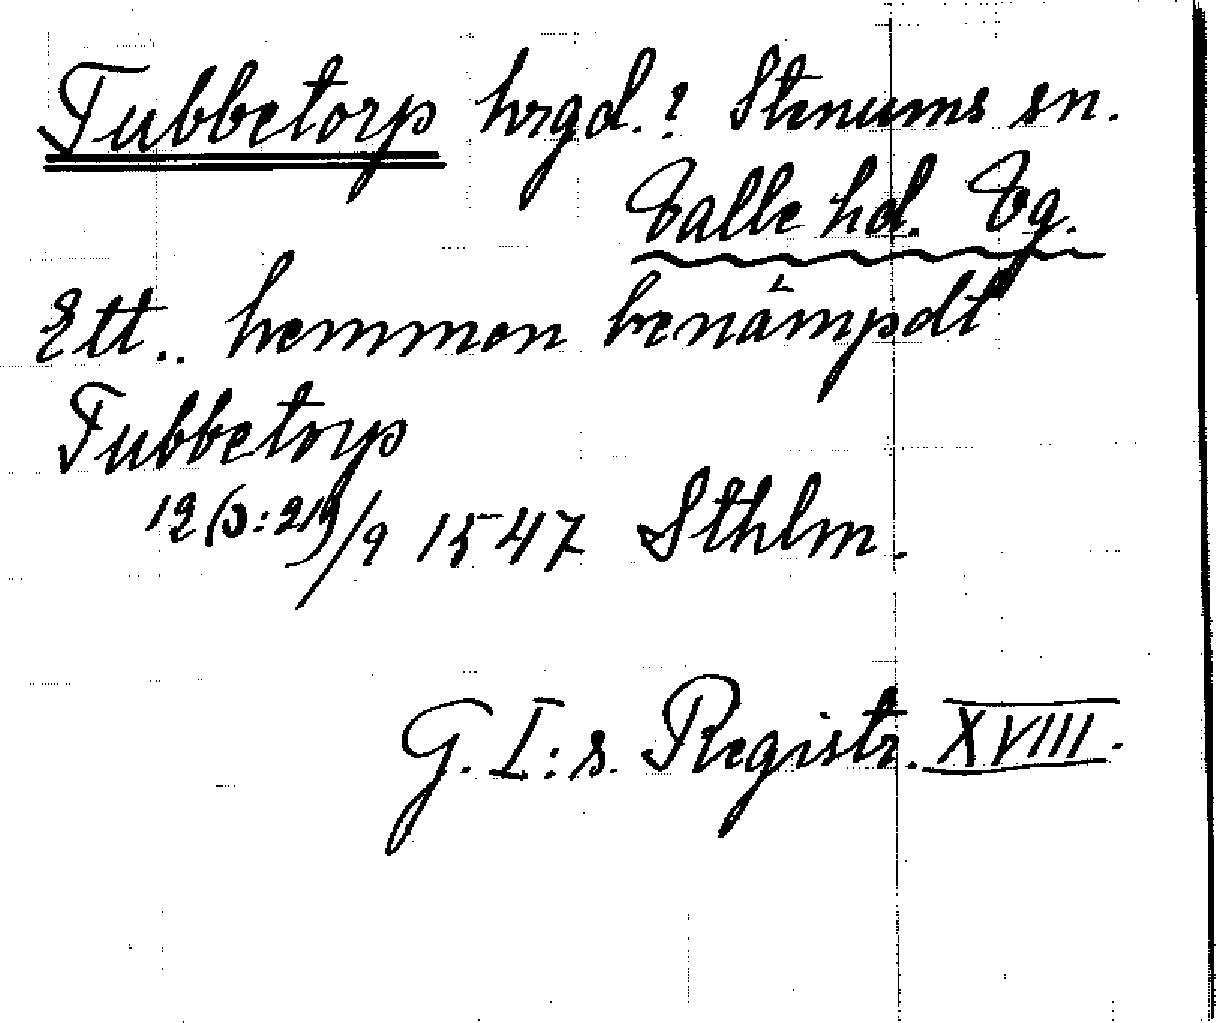 Tubbetorp hrgd.? Stenums sn.
Valle hd. Vg.
Ett.. hemmen benämpdt
Tubbetorp
12 (s: 21)/9 1547 Sthlm.
G. I:s. Registr. XVIII.